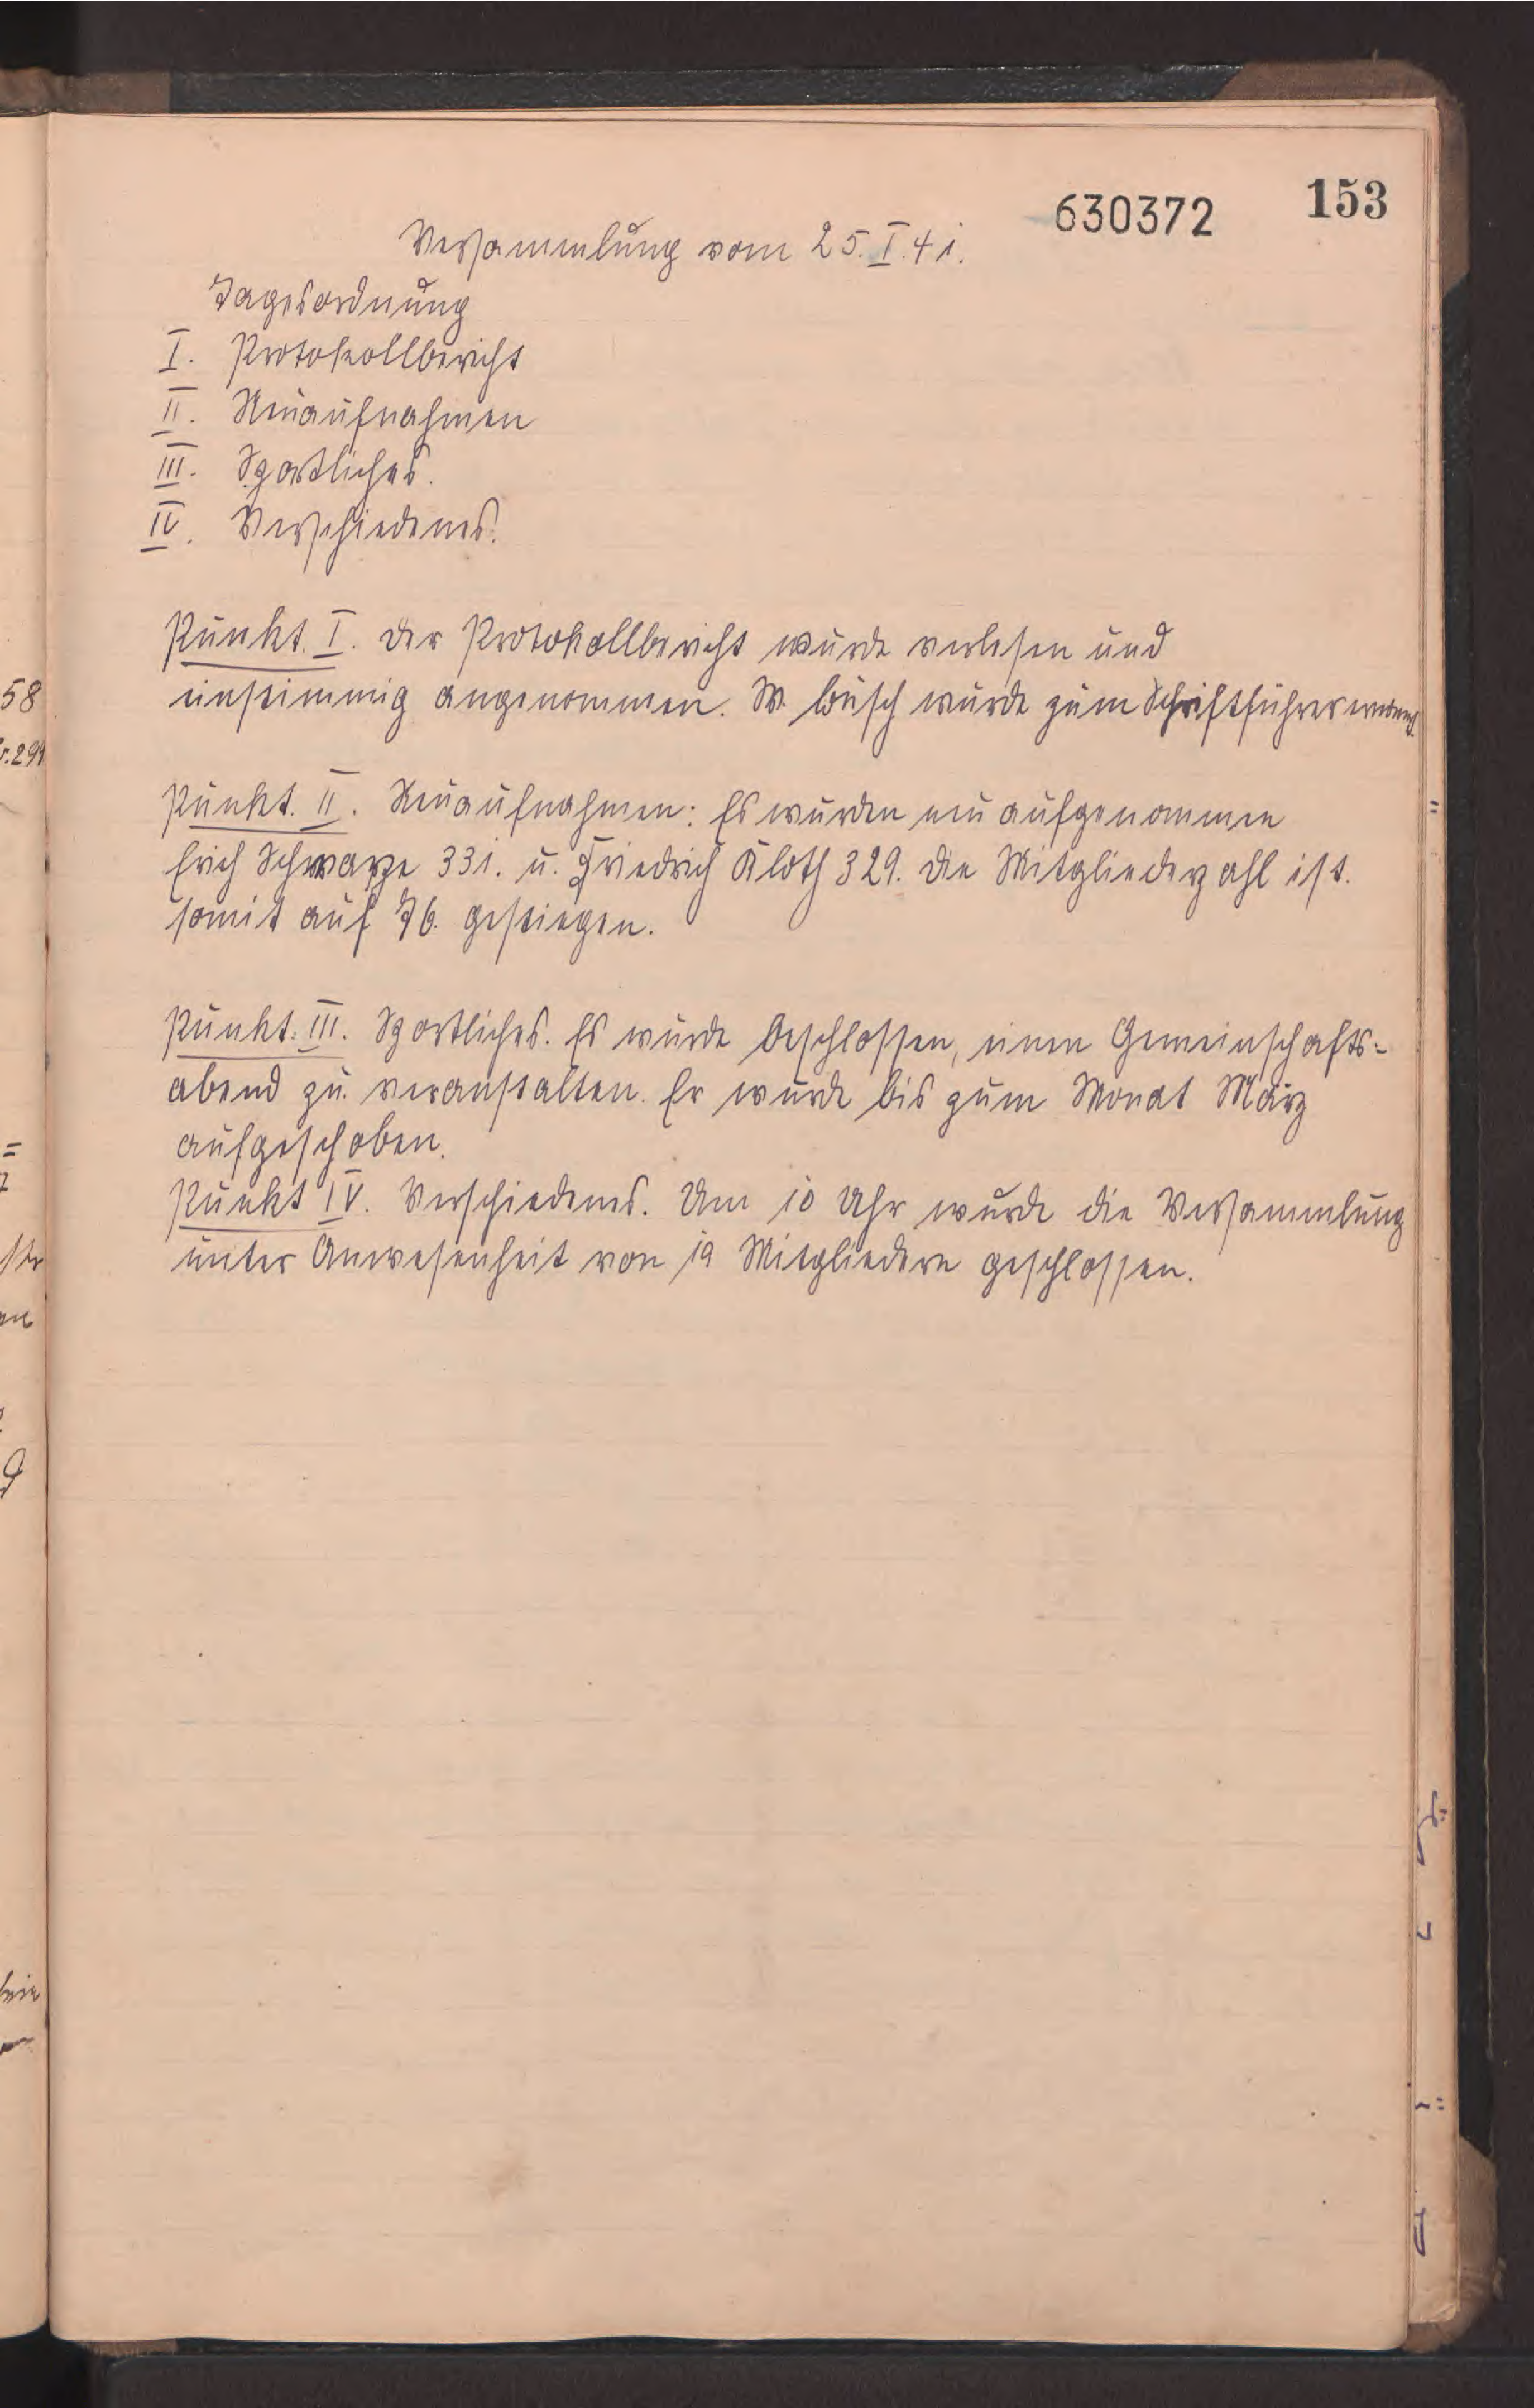 630372
153
Versammlung vom 25.I.41.
Tagesordnung
I. Protokollbericht
II. Neuaufnahmen
III. Sportliches.
IV. Verschiedenes.
Punkt. I. Der Protokollbericht wurde verlesen und
einstimmig angenommen. W. Busch wurde zum Schriftführer
Punkt. II. Neuaufnahmen: Es wurden neu aufgenommen
Erich Schwarze 331. u. Friedrich Kloth 329. Die Mitgliederzahl ist.
somit auf 76. gestiegen.
Punkt. III. Sportliches. Es wurde beschlossen, einen Gemeinschafts=
abend zu veranstalten. Er wurde bis zum Monat März
aufgeschoben.
Punkt IV. Verschiedenes. Um 10 Uhr wurde die Versammlung
unter Anwesenheit von 19 Mitgliedern geschlossen.
58
299